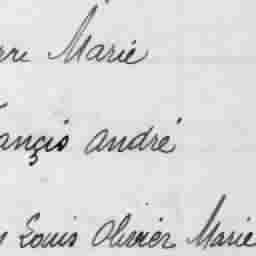 rre Marie
ançis André
Louis Olivier Marie